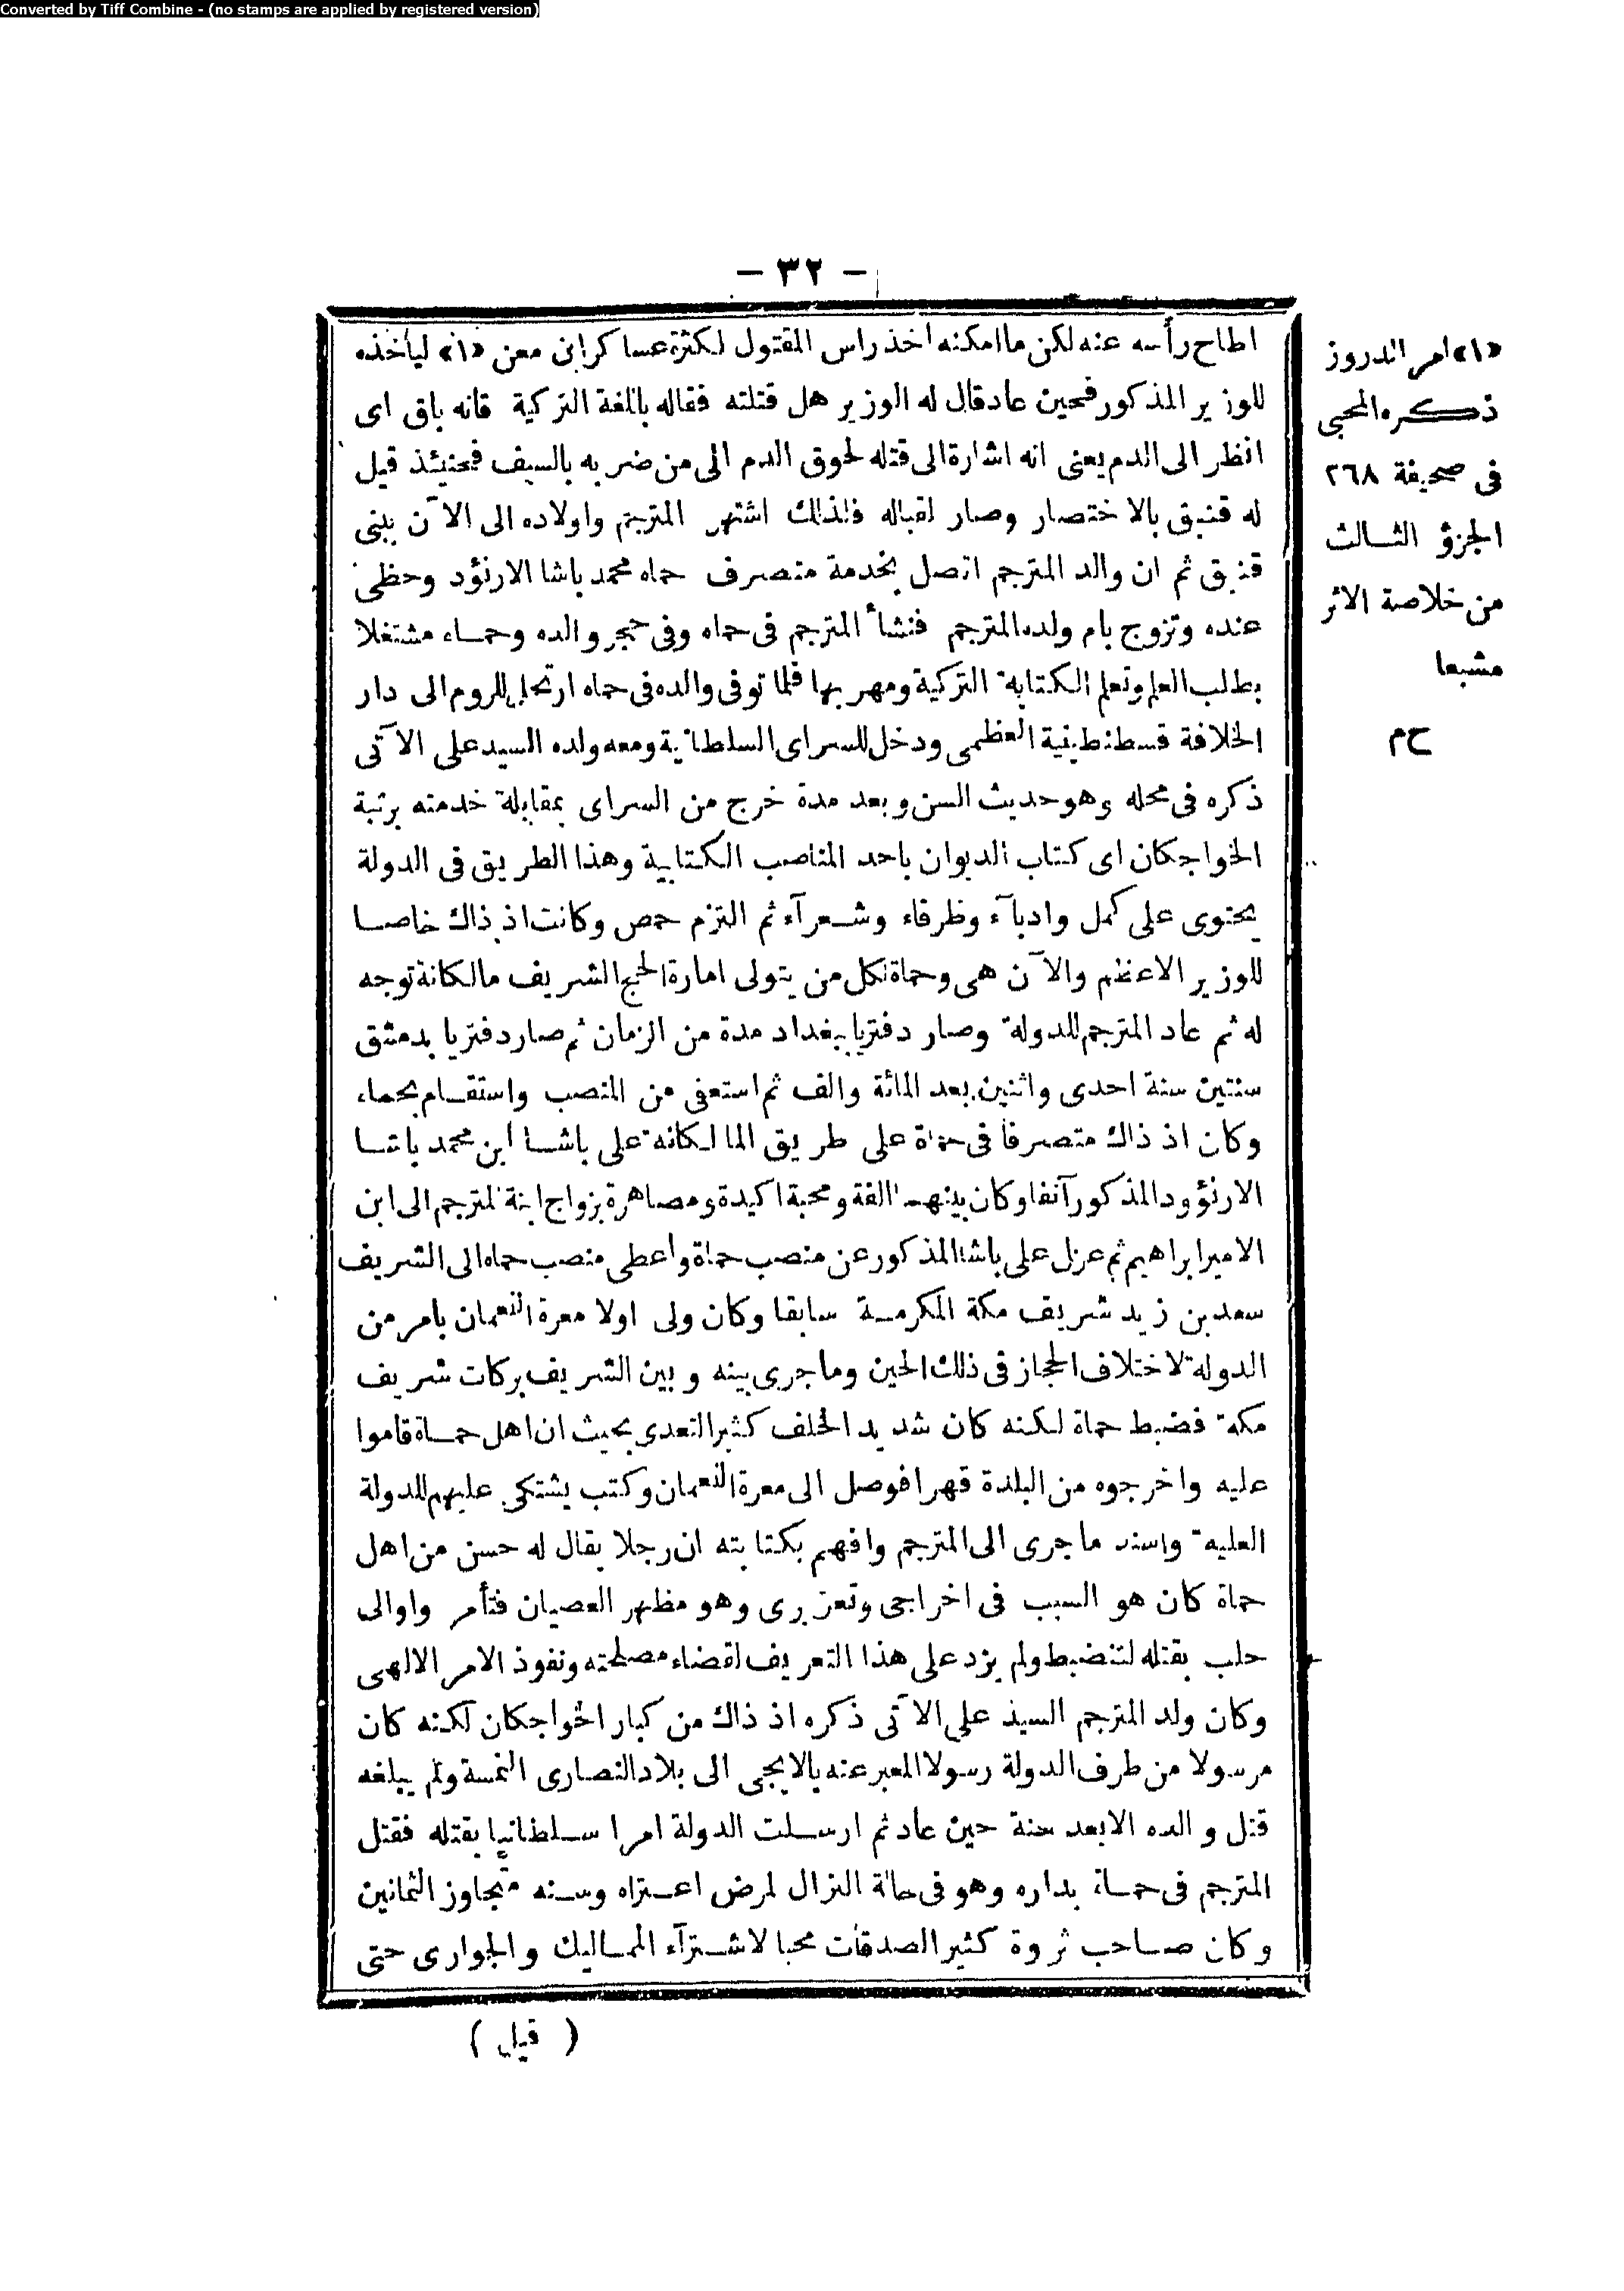 Converted by Tiff Combine - (no stamps are applied by registered version)
— ٣٢ —
اطاح رأسه عنه لكن ما امكنه اخذ راس المقتول لكثرة عساكر ابن معن «١» ليأخذه
للوزير المذكور فحين عاد قال له الوزير هل قتلته فقاله باللغة التركية قانه باق اى
انظر الى الدم يعنى انه اشارة الى قتله لحوق الدم الى من ضربه بالسيف فحينئذ قيل
له قنبق بالاختصار وصار لقباله فلذلك اشتهر المترجم واولاده الى الآن ببنى
قنبق ثم ان والد المترجم اتصل بخدمة متصرف حماه محمد باشا الارنؤد وحظى
عنده وتزوج بام ولده المترجم فنشأ المترجم فى حماه وفى حجر والده وحماه مشتغلا
بطلب العلم وتعلم الكتابة التركية ومهر بها فلما توفى والده فى حماه ارتحل للروم الى دار
الخلافة قسطنطينية العظمى ودخل للسراى السلطانية ومعه ولده السيد على الآتى
ذكره فى محله وهو حديث السن وبعد مدة خرج من السراى بمقابلة خدمته برتبة
الخواجكان اى كتاب الديوان باحد المناصب الكتابية وهذا الطريق فى الدولة
يحتوى على كمل وادبآء وظرفاء وشعرآء ثم التزم حمص وكانت اذ ذاك خاصا
للوزير الاعظم والآن هى وحماة لكل من يتولى امارة الحج الشريف مالكانة توجه
له ثم عاد المترجم للدولة وصار دفتريا ببغداد مدة من الزمان ثم صار دفتريا بدمشق
سنتين سنة احدى واثنين بعد المائة والف ثم استعفى من المنصب واستقام بحماه
وكان اذ ذاك متصرفا فى حماة على طريق المالكانة على باشا ابن محمد باشا
الارنؤود المذكور آنفا وكان بينهما الفة ومحبة اكيدة ومصاهرة بزواج ابنة المترجم الى ابن
الامير ابراهيم ثم عزل على باشا المذكور عن منصب حماة واعطى منصب حماه الى الشريف
سعد بن زيد شريف مكة المكرمة سابقا وكان ولى اولا معرة النعمان بامر من
الدولة لاختلاف الحجاز فى ذلك الحين وما جرى بينه وبين الشريف بركات شريف
مكة فضبط حماة لكنه كان شديد الخلف كثير التعدى بحيث ان اهل حماة قاموا
عليه واخرجوه من البلدة قهرا فوصل الى معرة النعمان وكتب يشتكى عليهم للدولة
العلية واسند ما جرى الى المترجم وافهم بكتابته ان رجلا يقال له حسن من اهل
حماة كان هو السبب فى اخراجى وتعزيرى وهو مظهر العصيان فتأمر واوالى
حلب بقتله لتنضبط ولم يزد على هذا التعريف لقضاء مصلحته ونفوذ الامر الالهى
وكان ولد المترجم السيد على الآتى ذكره اذ ذاك من كبار الخواجكان لكنه كان
مرسولا من طرف الدولة رسولا المعبر عنه بالايجى الى بلاد النصارى النمسة ولم يبلغه
قتل والده الا بعد سنة حين عاد ثم ارسلت الدولة امرا سلطانيا بقتله فقتل
المترجم فى حماة بداره وهو فى حالة النزال لمرض اعتراه وسنه متجاوز الثمانين
وكان صاحب ثروة كثير الصدقات محبا لاشترآء المماليك والجوارى حتى
( قيل )
«١» امر الدروز
ذكره المحبى
فى صحيفة ٢٦٨
الجزؤ الثالث
من خلاصة الاثر
مشبعا
ح م